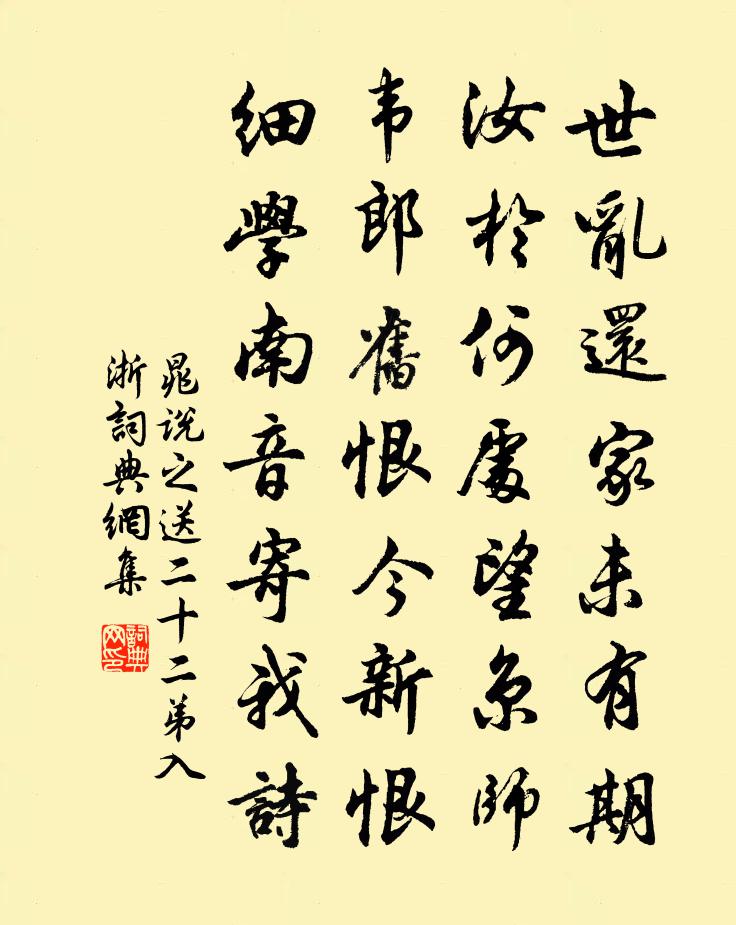 世亂還家未有期
汝於何處望京師
韦郎舊恨今新恨
細學南音寄我詩
晁说之送二十二弟入
浙詞典網集
詞典
网印